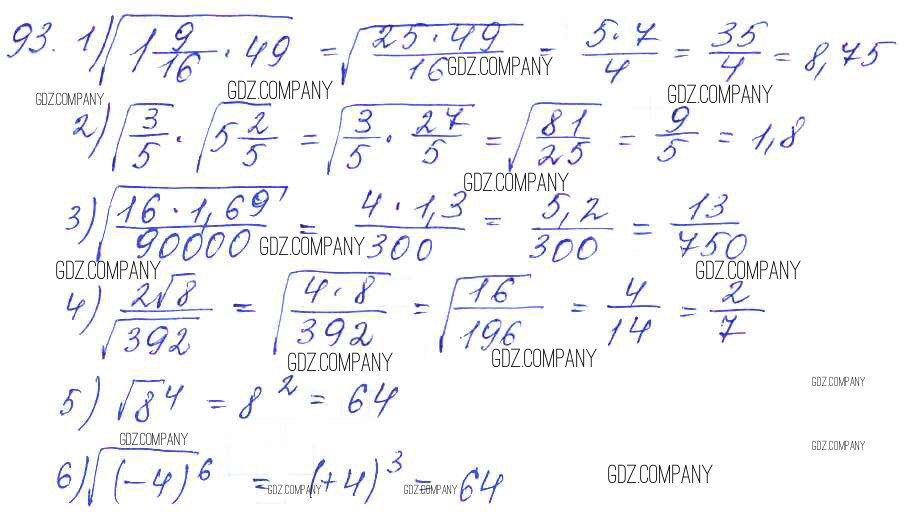 93. 1) √(1 9/16 · 49) = √(25 · 49 / 16) = 5 · 7 / 4 = 35/4 = 8,75
GDZ.COMPANY GDZ.COMPANY GDZ.COMPANY GDZ.COMPANY
2) √(3/5) · √(5 2/5) = √(3/5 · 27/5) = √(81/25) = 9/5 = 1,8
GDZ.COMPANY
3) √(16 · 1,69 / 90000) = 4 · 1,3 / 300 = 5,2 / 300 = 13 / 750
GDZ.COMPANY GDZ.COMPANY GDZ.COMPANY
4) 2√8 / √392 = √(4 · 8 / 392) = √(16 / 196) = 4/14 = 2/7
GDZ.COMPANY GDZ.COMPANY
GDZ.COMPANY
5) √8⁴ = 8² = 64
GDZ.COMPANY GDZ.COMPANY
6) √(-4)⁶ = (+4)³ = 64
GDZ.COMPANY GDZ.COMPANY GDZ.COMPANY